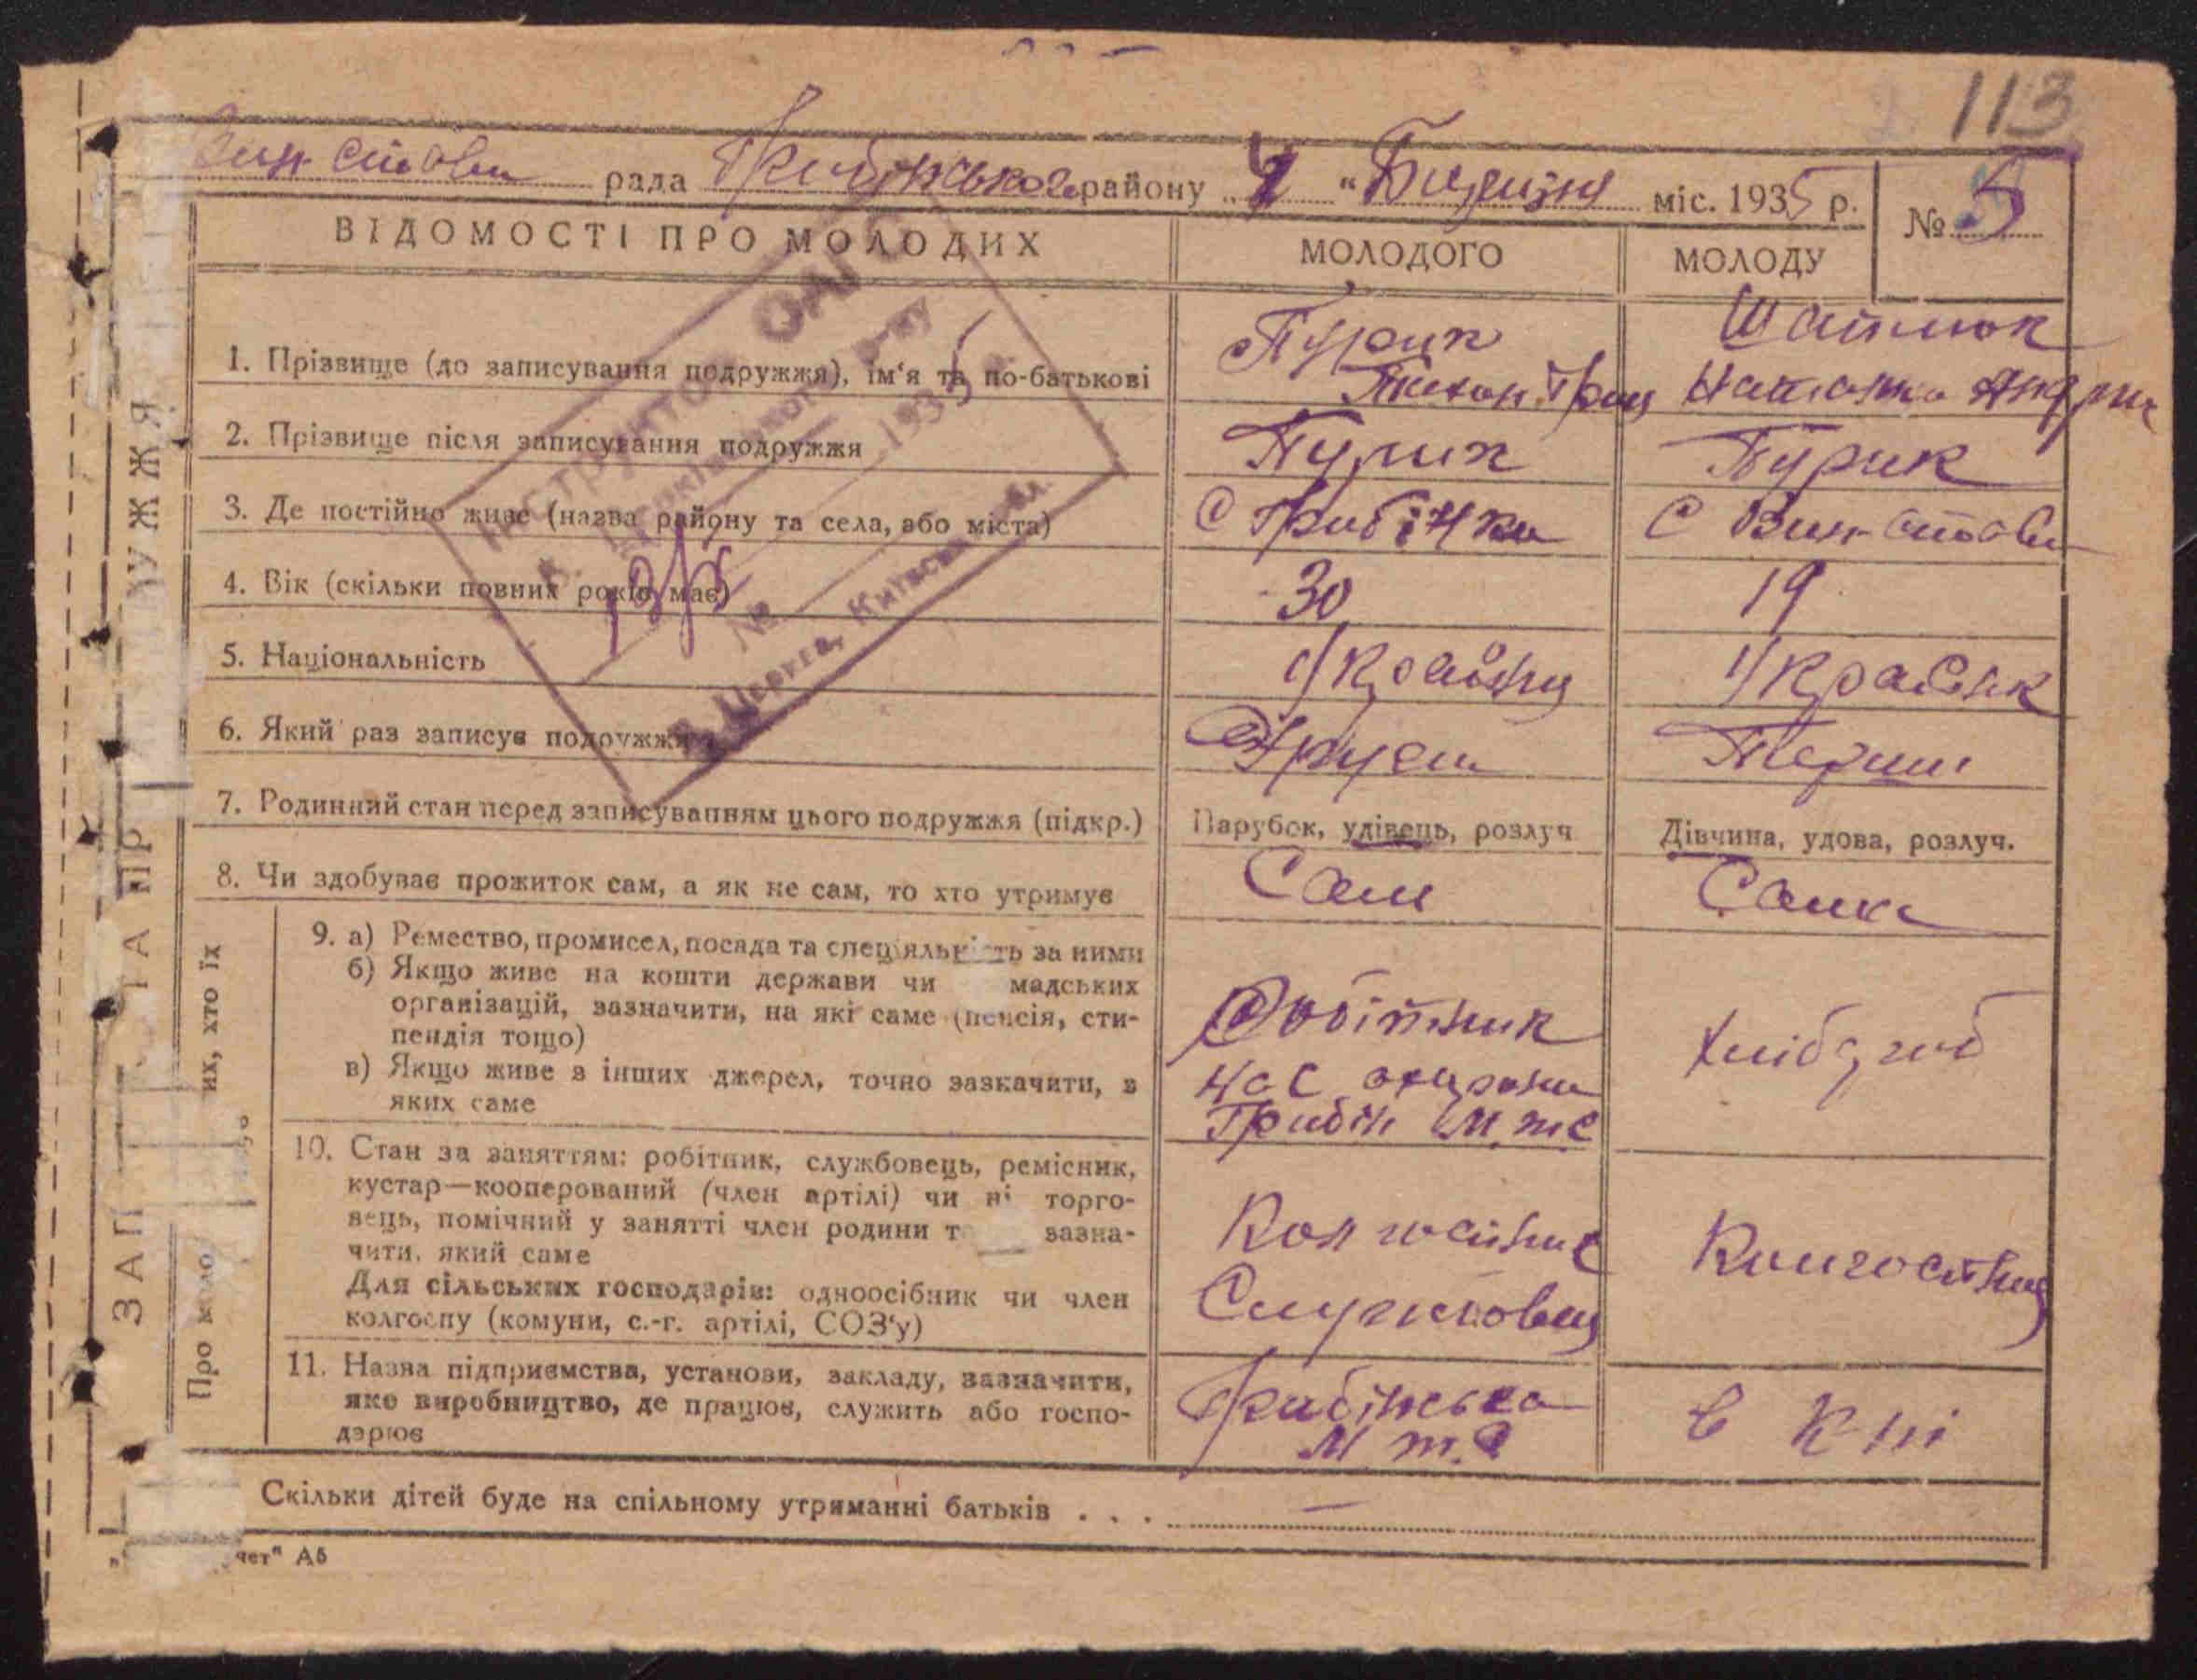 113
Вин-стави рада Грибінської району „4“ Березня міс. 1935 р. № 5
ВІДОМОСТІ ПРО МОЛОДИХ
МОЛОДОГО
МОЛОДУ
1. Прізвище (до записування подружжя), ім‘я та по-батькові
Пурик
Тихон Григ
Шатнюк
Наталка Андри
2. Прізвище після записування подружжя
Пурик
Пурик
3. Де постійно живе (назва району та села, або міста)
С Грибінки
С Вин-стави
4. Вік (скільки повних років має)
30
19
5. Національність
Україниц
Українк
6. Який раз записує подружжя
Другий
Перши
7. Родинний стан перед записуванням цього подружжя (підкр.)
Парубок, удівець, розлуч
Дівчина, удова, розлуч.
8. Чи здобуває прожиток сам, а як не сам, то хто утримує
Сам
Сама
9. а) Ремество, промисел, посада та спеціяльність за ними
б) Якщо живе на кошти держави чи мадських
організацій, зазначити, на які саме (пенсія, сти-
пендія тощо)
в) Якщо живе з інших джерел, точно зазначити, з
яких саме
Робітник
Нас охорони
Грибін М.т.С
Хлібороб
10. Стан за заняттям: робітник, службовець, ремісник,
кустар—кооперований (член артілі) чи ні торго-
вець, помічний у занятті член родини т зазна-
чити, який саме
Для сільських господарів: одноосібник чи член
колгоспу (комуни, с.-г. артілі, СОЗ‘у)
Колгоспник
Службовец
Колгоспниц
11. Назва підприємства, установи, закладу, зазначити,
яке виробництво, де працює, служить або госпо-
дарює
Грибінська
М.т.С
Скільки дітей буде на спільному утриманні батьків . . . —
чет" А5
ЗАП ТА ПР УЖЖЯ
Про моло
их, хто їх
Інструктор ОАГС
Б. Церківського р-ну
193 5
№
Б. Церква, Київська обл.